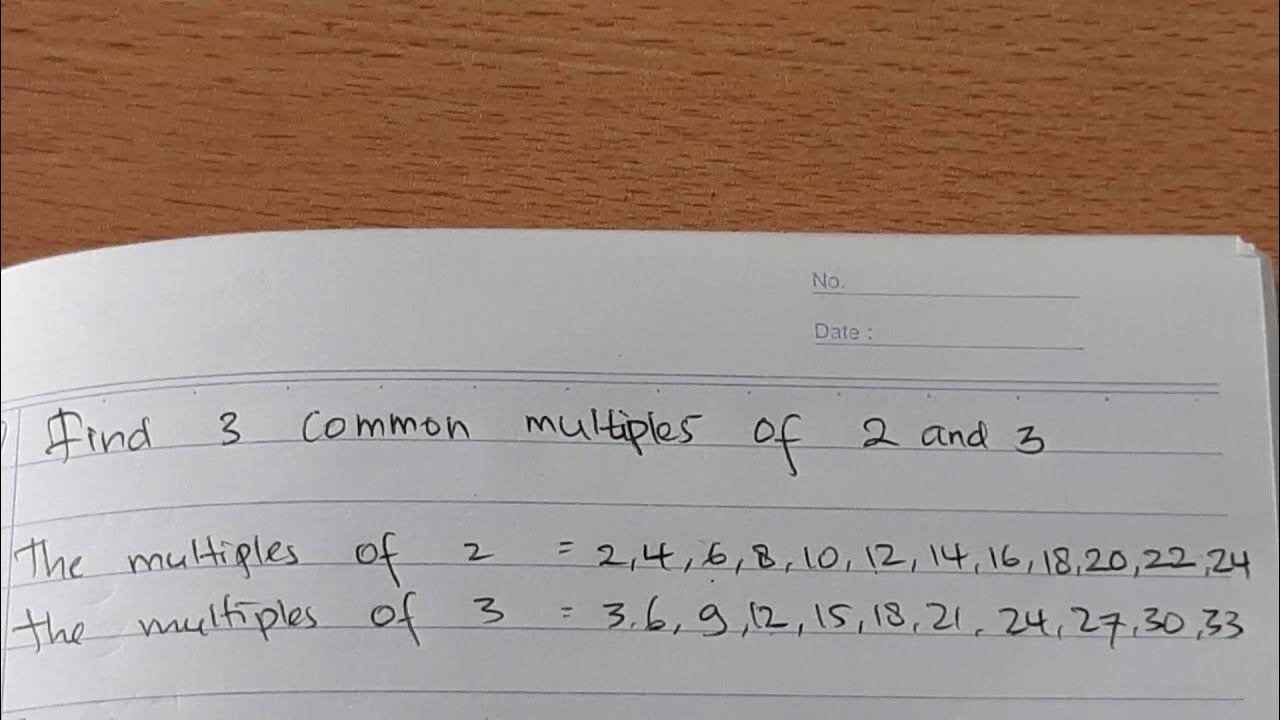 No.
Date :
Find 3 common multiples of 2 and 3
The multiples of 2 = 2,4,6,8,10,12,14,16,18,20,22,24
the multiples of 3 = 3,6,9,12,15,18,21,24,27,30,33